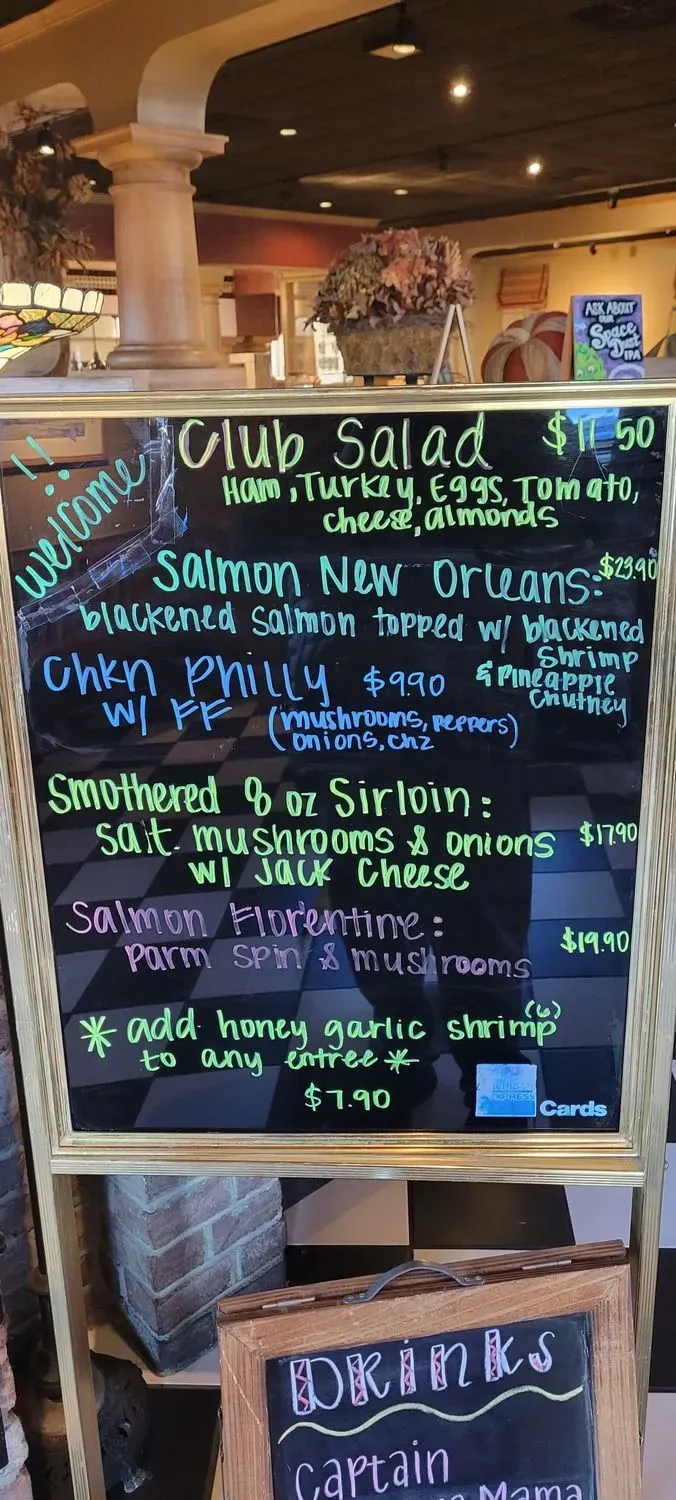 ASK ABOUT
OUR
Space
Dust
IPA
!!
welcome
Club Salad $11.50
Ham, Turkey, Eggs, Tomato,
cheese, almonds
Salmon New Orleans: $23.90
blackened Salmon topped w/ blackened
Shrimp
& Pineapple
Chutney
Chkn Philly $9.90
w/ FF (mushrooms, peppers)
onions, chz
Smothered 8 oz Sirloin:
saut. mushrooms & onions $17.90
w/ Jack Cheese
Salmon Florentine: $19.90
parm spin & mushrooms
* add honey garlic shrimp (6)
to any entree *
$7.90
EXPRESS
Cards
DRINKS
Captain
Mama